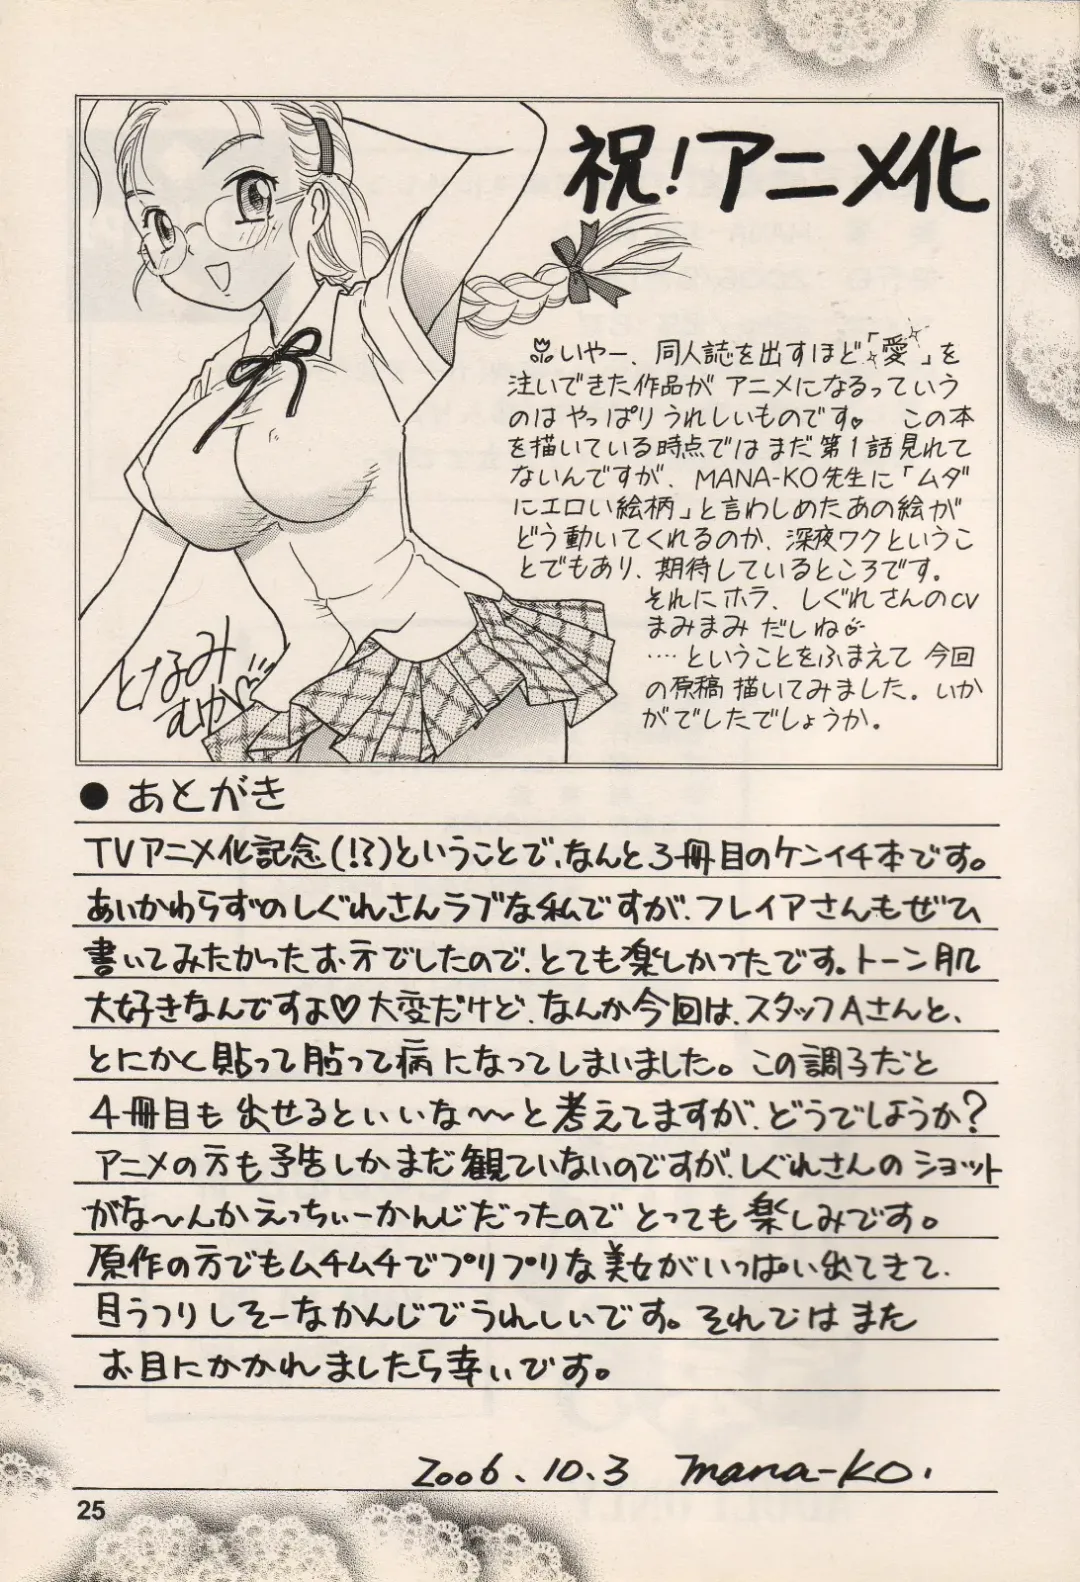 祝!アニメ化
いやー、同人誌を出すほど「愛」を
注いできた作品が アニメになるっていう
のは やっぱり うれしいものです この本
を描いている時点では まだ 第1話見れて
ないんですが、MANA-KO先生に「ムダ
にエロい絵柄」と言わしめたあの絵が
どう動いてくれるのか、深夜ワクというこ
とでもあり、期待しているところです。
それにホラ、しぐれさんのCV
まみまみ だしね
‥‥ということをふまえて 今回
の原稿 描いてみました。いか
がでしたでしょうか。
となみ
むか
●あとがき
TVアニメ化記念(!?)ということで、なんと3冊目のケンイチ本です。
あいかわらずのしぐれさんラブな私ですが、フレイアさんもぜひ
書いてみたかったお方でしたので、とても楽しかったです。トーン肌
大好きなんですよ♡大変だけど、なんか今回は、スタッフAさんと、
とにかく貼って貼って病になってしまいました。この調子だと
4冊目も出せるといいな〜〜と考えてますが、どうでしょうか?
アニメの方も予告しかまだ観ていないのですが、しぐれさんのショット
がな〜んかえっちぃーかんじだったのでとっても楽しみです。
原作の方でもムチムチでプリプリな美女がいっぱい出てきて、
目うつりしそーなかんじでうれしいです。それではまた
お目にかかれましたら幸いです。
2006.10.3 mana-ko.
25